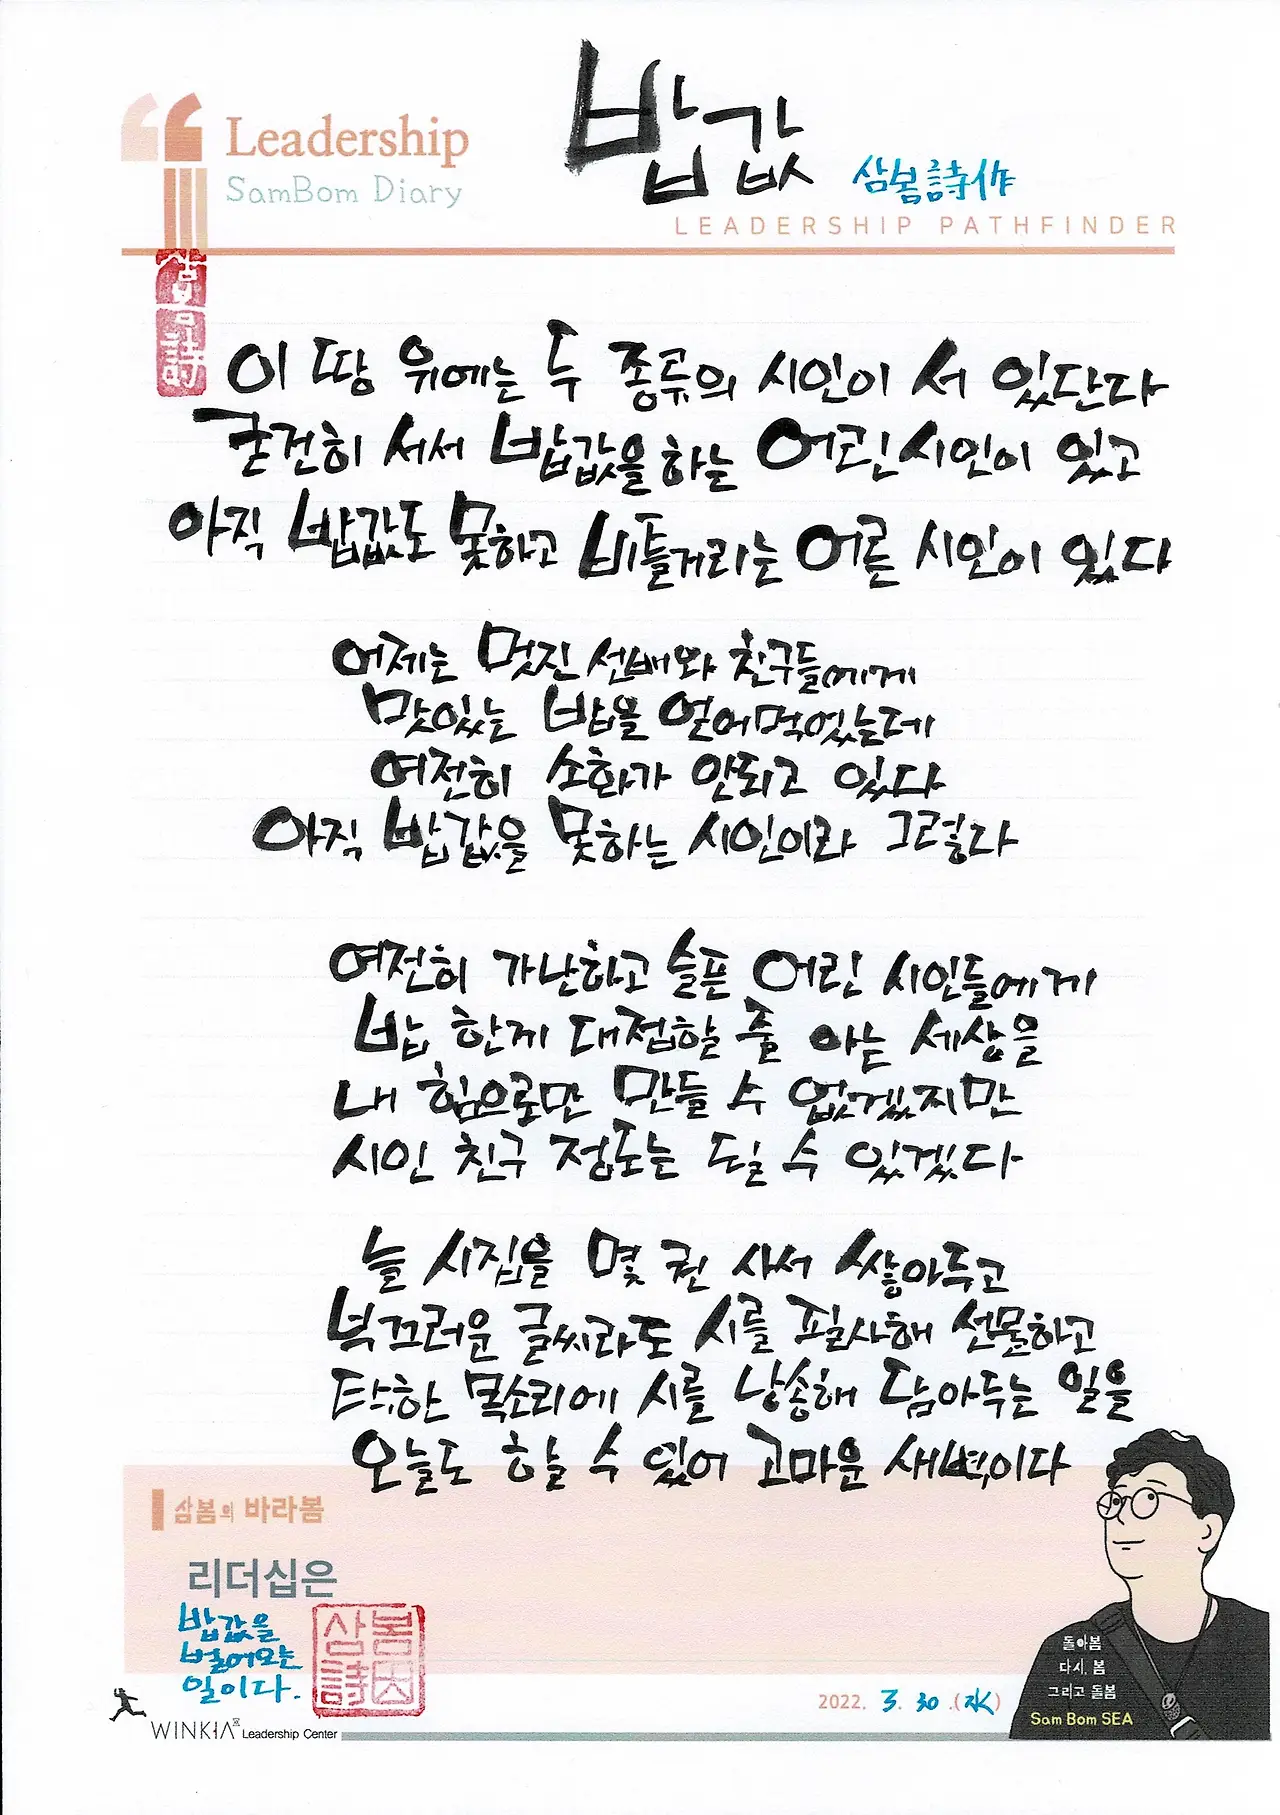 밥값
삼봄詩作
Leadership
SamBom Diary
LEADERSHIP PATHFINDER
이 땅 위에는 두 종류의 시인이 서 있단다
굳건히 서서 밥값을 하는 어린 시인이 있고
아직 밥값도 못하고 비틀거리는 어른 시인이 있다
어제는 멋진 선배와 친구들에게
맛있는 밥을 얻어먹었는데
여전히 소화가 안되고 있다
아직 밥값을 못하는 시인이라 그렇다
여전히 가난하고 슬픈 어린 시인들에게
밥 한끼 대접할 줄 아는 세상을
내 힘으로만 만들 수 없겠지만
시인 친구 정도는 될 수 있겠다
늘 시집을 몇 권 사서 쌓아두고
부끄러운 글씨라도 시를 필사해 선물하고
탁한 목소리에 시를 낭송해 담아두는 일을
오늘도 할 수 있어 고마운 새벽이다
삼봄의 바라봄
리더십은
밥값을
벌어오는
일이다.
삼봄
돌아봄
다시, 봄
그리고 돌봄
Sam Bom SEA
2022. 3. 30 .(水)
WINKIA Leadership Center